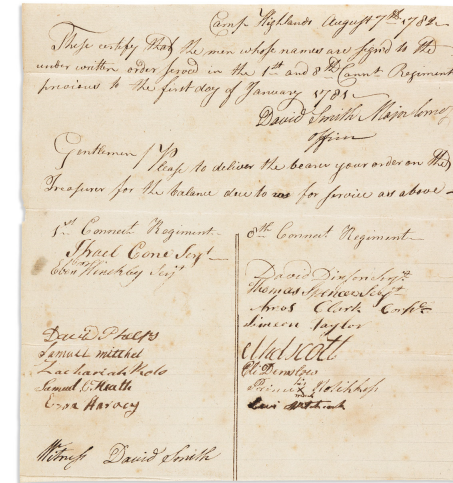 Camp Highlands August 7th 1782
These certify that the men whose names are signd to the
under written order served in the 1st and 8th Connt Regiment
previous to the first day of January 1781
David Smith Major
officer
Gentlemen / Please to deliver the bearer your order on the
Treasurer for the balance due to us for service as above
1st Connect Regiment
Israel Cone Sergt
Hinckley Sergt
David Phelps
Samuel mitchel
Zachariah
Samuel C Heath
Ezra Harvey
Witness David Smith
8th Connect Regiment
David Sergt
Thomas Spencer Sergt
Amos Clark Corpl
Simeon Taylor
Scott
Eli
Prince